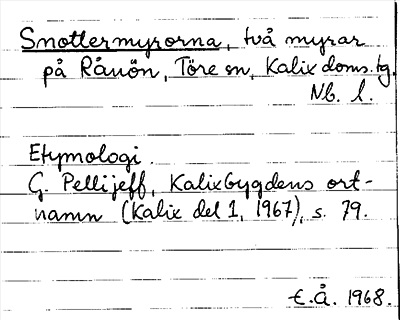 Snottermyrorna, två myrar
på Rånön, Töre sn, Kalix doms.tg.
Nb. l.
Etymologi.
G. Pellijeff, Kalixbygdens ort-
namn (Kalix del 1, 1967), s. 79.
E.Å. 1968.